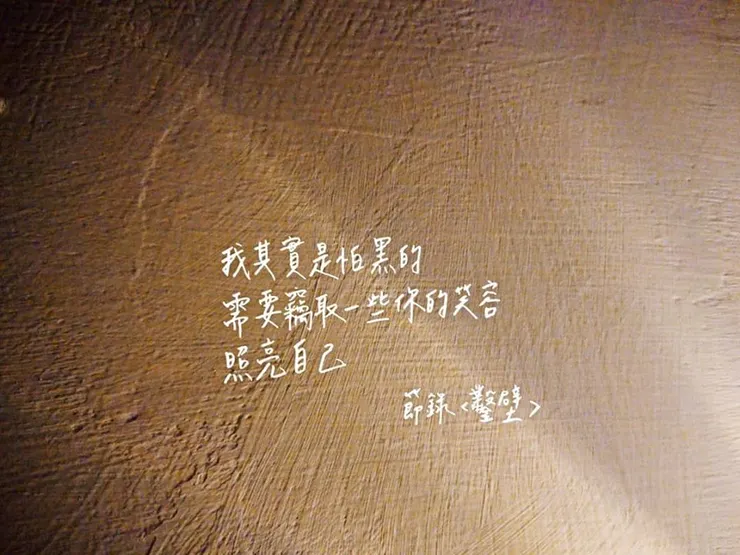 我其實是怕黑的
需要竊取一些你的笑容
照亮自己
節錄<鑿壁>